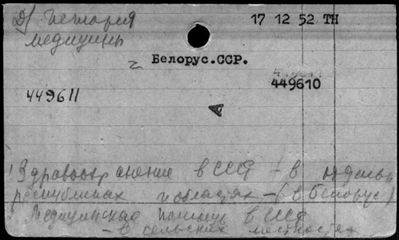 Д) История 17 12 52 ТН
медицины
Белорус.ССР.
449611
449610
Здравоохранение в СССР - (в отдельн.
республиках и областях - (в Белорус)
Медицинская помощь в СССР
- в сельских местностях